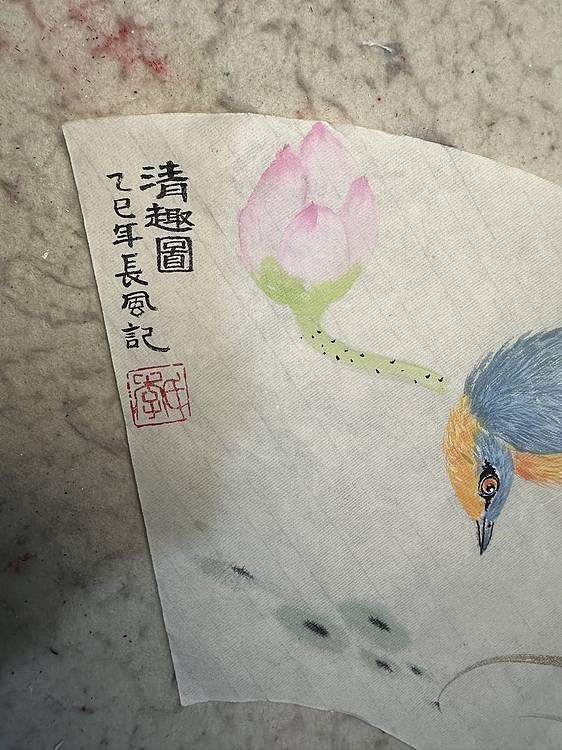 清趣圖
乙巳年長風記
李氏